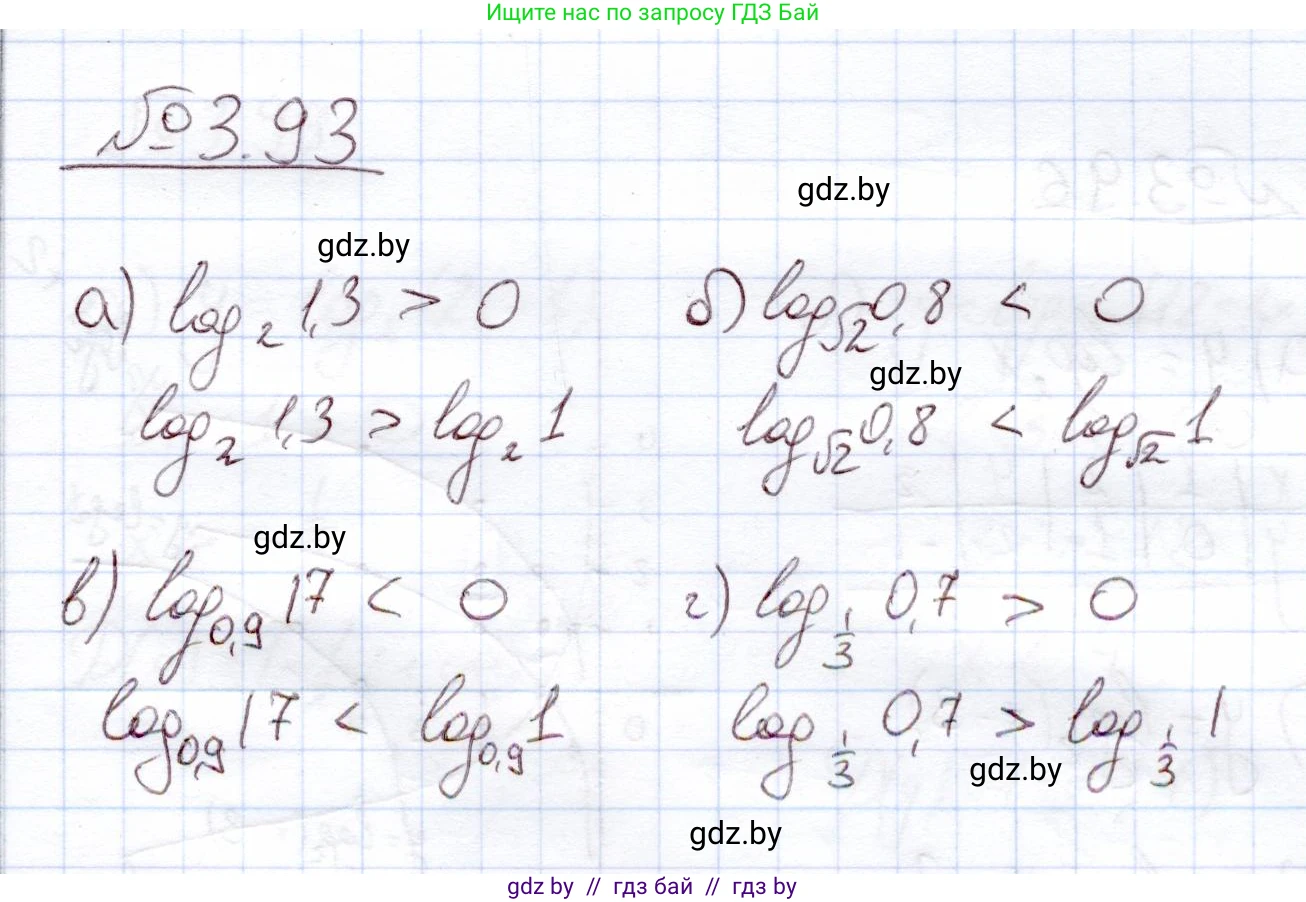 Ищите нас по запросу ГДЗ Бай
№3.93
gdz.by
gdz.by
а) log₂ 1,3 > 0
log₂ 1,3 > log₂ 1
б) log_√2 0,8 < 0
gdz.by
log_√2 0,8 < log_√2 1
gdz.by
в) log_0,9 17 < 0
log_0,9 17 < log_0,9 1
г) log_1/3 0,7 > 0
log_1/3 0,7 > log_1/3 1
gdz.by
gdz.by
gdz by // гдз бай // гдз by